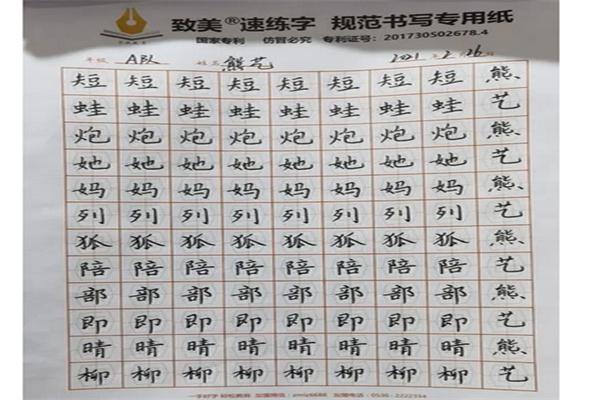 致美®速练字 规范书写专用纸
国家专利 仿冒必究 专利证号:201730502678.4
年级 ABL 姓名 熊艺 2021年2月26日
短 短 短 短 短 短 短 短 熊
蛙 蛙 蛙 蛙 蛙 蛙 蛙 蛙 艺
炮 炮 炮 炮 炮 炮 炮 炮 熊
她 她 她 她 她 她 她 她 艺
妈 妈 妈 妈 妈 妈 妈 妈 熊
列 列 列 列 列 列 列 列 艺
狐 狐 狐 狐 狐 狐 狐 狐 熊
陪 陪 陪 陪 陪 陪 陪 陪 艺
部 部 部 部 部 部 部 部 熊
即 即 即 即 即 即 即 即 艺
晴 晴 晴 晴 晴 晴 晴 晴 熊
柳 柳 柳 柳 柳 柳 柳 柳 艺
一手好字 轻松教育 加盟微信:zmlz6688 加盟电话:0536-2222354